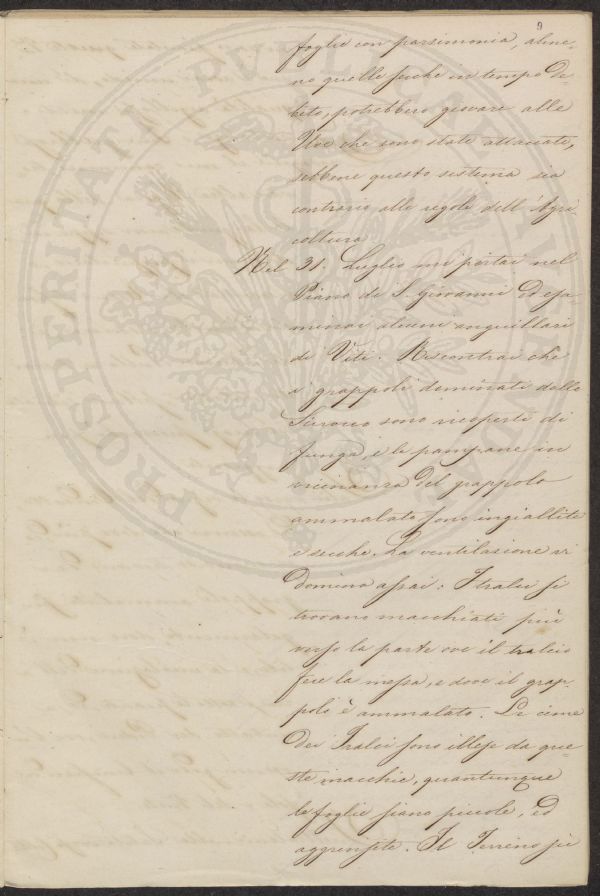 9
foglie con parsimonia, alme=
no quelle secche in tempo de=
bito, potrebbero giovare alle
Uve che sono state attaccate,
sebbene questo sistema sia
contrario alle regole dell'Agri
coltura.
Nel 31. Luglio mi portai nel
Piano di S. Giovanni ed esa=
minai alcuni anguillari
di Viti. Riscontrai che
i grappoli dominati dallo
Scirocco sono ricoperti di
funga, e le pampane in
vicinanza del grappolo
ammalato sono ingiallite
e secche. La ventilazione vi
domina assai: I tralci si
trovano macchiati più
verso la parte ove il tralcio
fece la messa, e dove il grap=
polo è ammalato. Le cime
dei Tralci sono illese da que=
ste macchie, quantunque
le foglie siano piccole, ed
aggrensite. Il Terreno più
PROSPERITATI PVBLICAE AVGENDAE